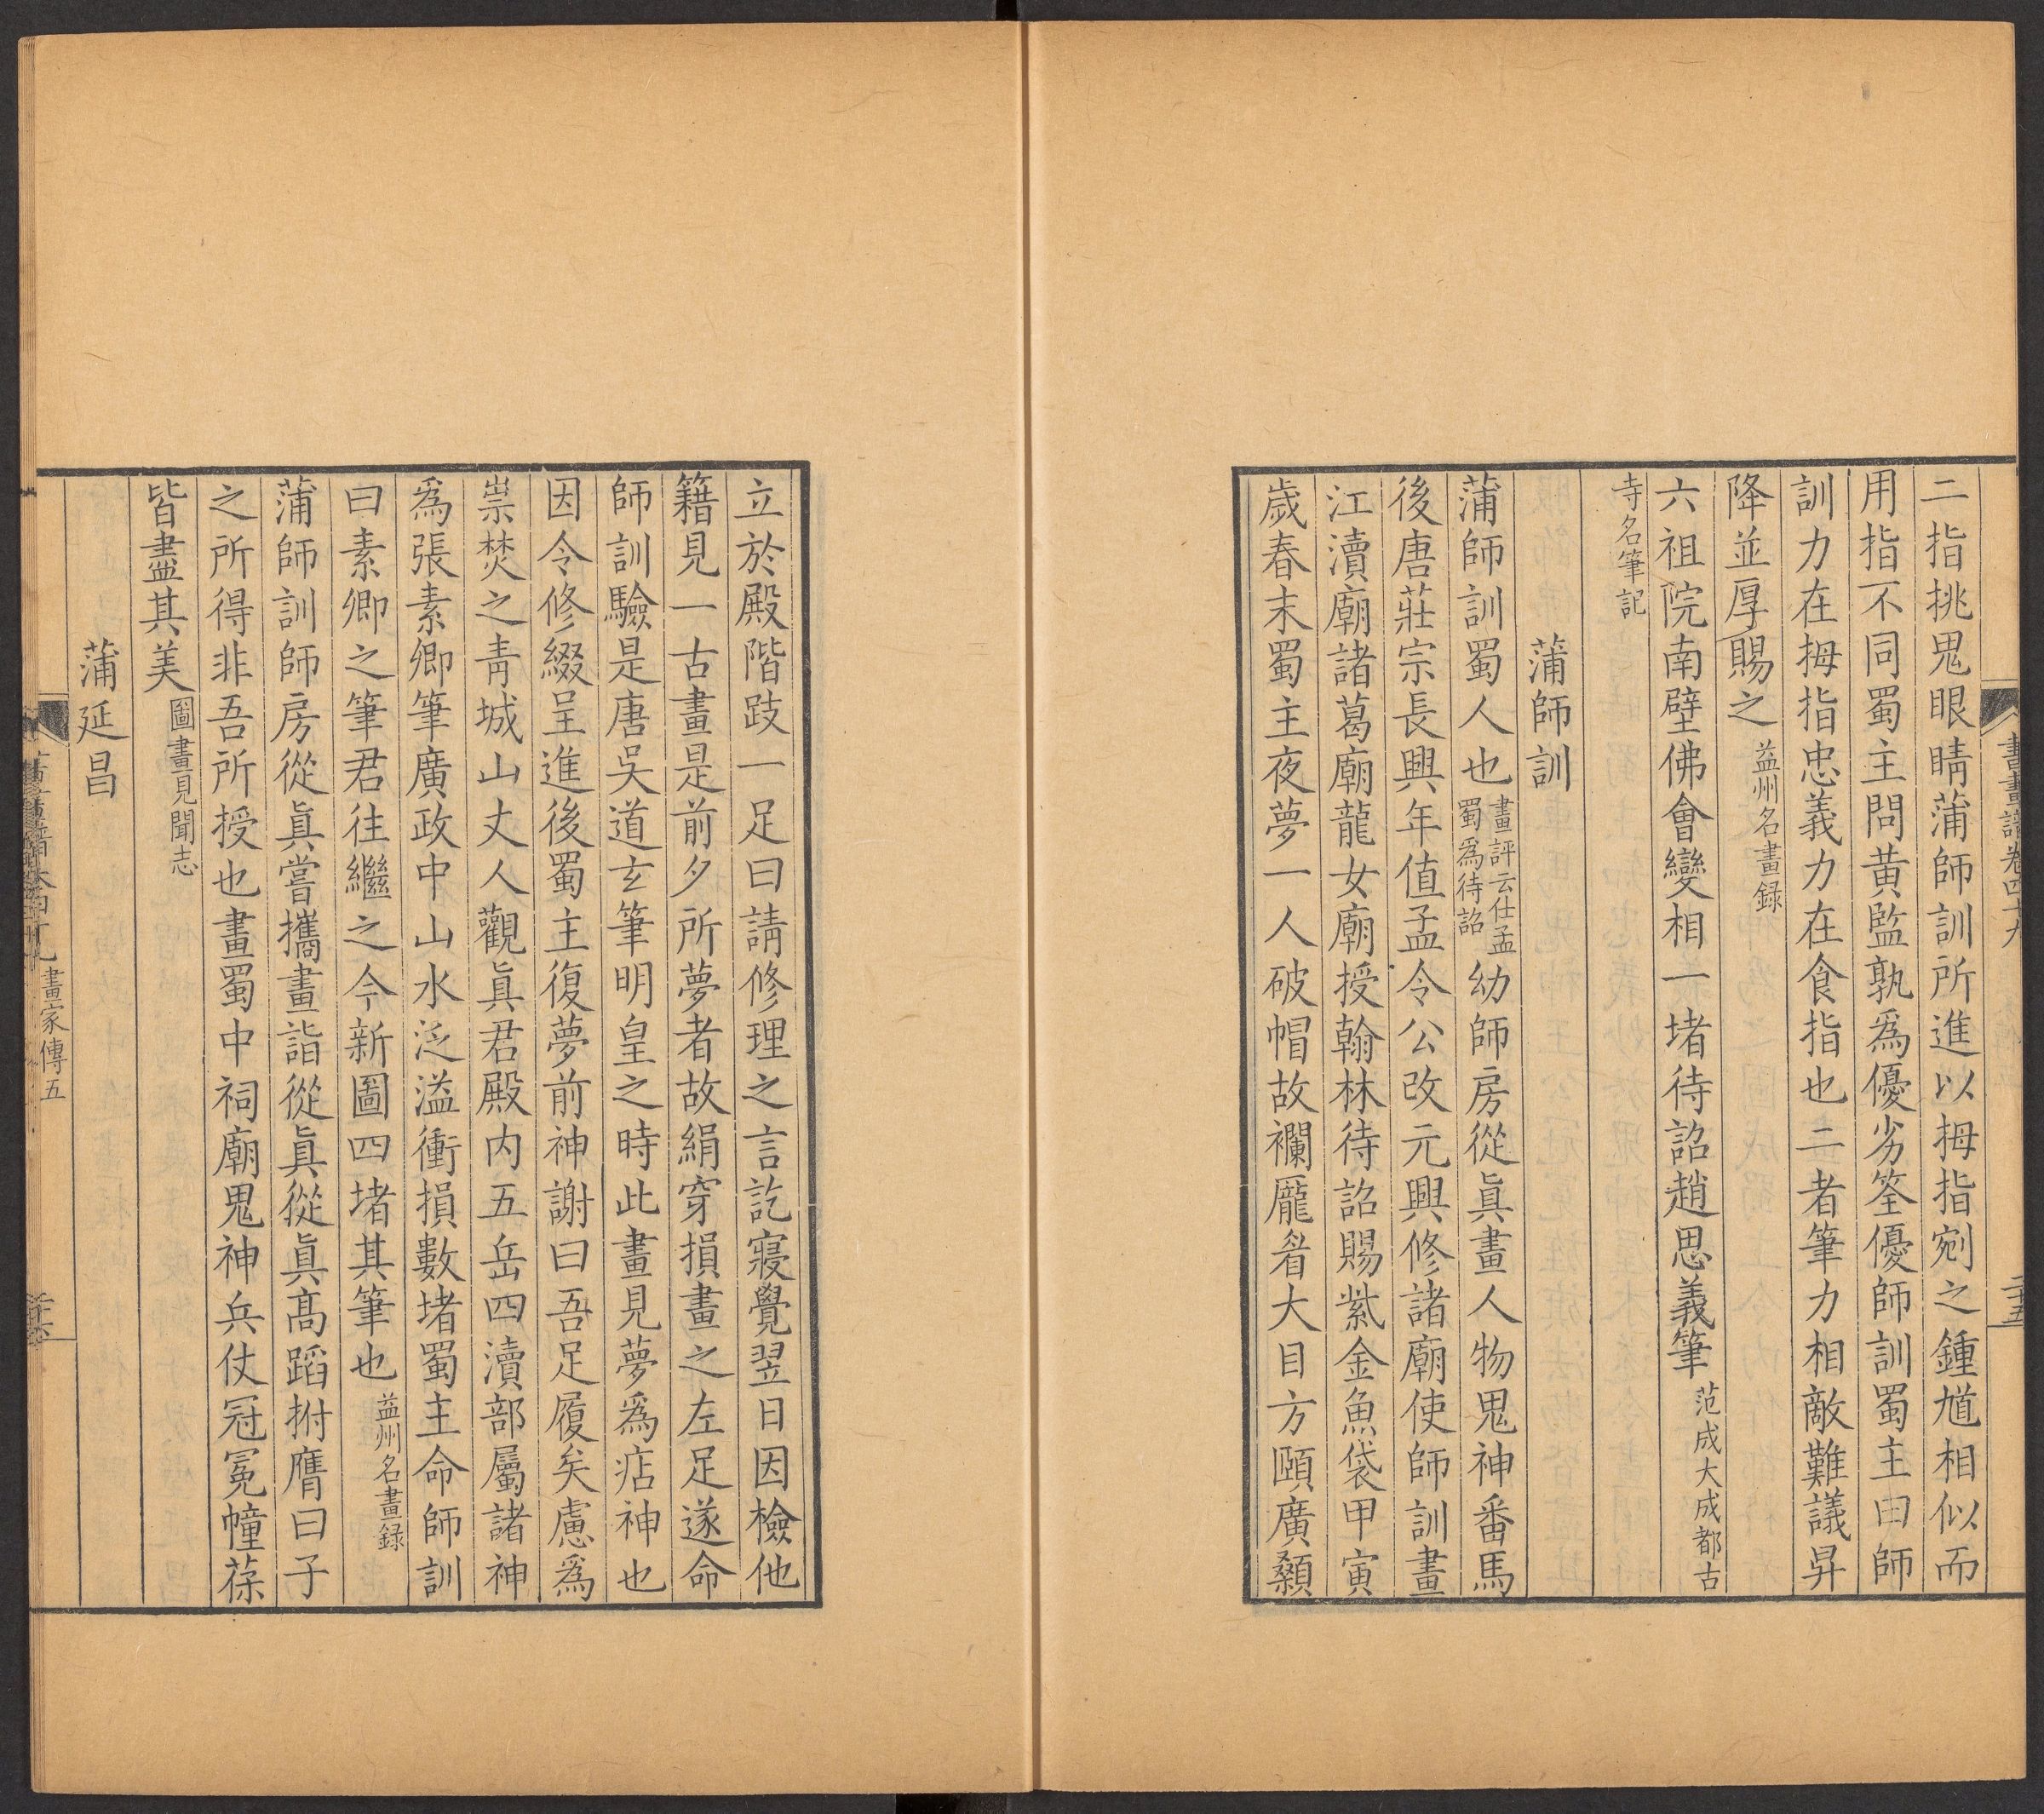 二指挑鬼眼睛蒲師訓所進以拇指剜之鍾馗相似而
用指不同蜀主問黃監孰爲優劣筌優師訓蜀主曰師
訓力在拇指忠義力在食指也二者筆力相敵難議昇
降並厚賜之益州名畫録
六祖院南壁佛會變相一堵待詔趙思義筆范成大成都古
寺名筆記
蒲師訓
蒲師訓蜀人也畫評云仕孟蜀爲待詔幼師房從眞畫人物鬼神番馬
後唐莊宗長興年值孟令公改元興修諸廟使師訓畫
江瀆廟諸葛廟龍女廟授翰林待詔賜紫金魚袋甲寅
歲春末蜀主夜夢一人破帽故襴龐眉大目方頤廣顙
書畫譜卷四十九
二十五
立於殿階跂一足曰請修理之言訖寢覺翌日因檢他
籍見一古畫是前夕所夢者故絹穿損畫之左足遂命
師訓驗是唐吳道玄筆明皇之時此畫見夢爲痁神也
因令修綴呈進後蜀主復夢前神謝曰吾足履矣慮爲
祟焚之青城山丈人觀眞君殿内五岳四瀆部屬諸神
爲張素卿筆廣政中山水泛溢衝損數堵蜀主命師訓
曰素卿之筆君往繼之今新圖四堵其筆也益州名畫録
蒲師訓師房從眞嘗攜畫詣從眞從眞高蹈拊膺曰子
之所得非吾所授也畫蜀中祠廟鬼神兵仗冠冕幢葆
皆盡其美圖畫見聞志
蒲延昌
畫家傳五